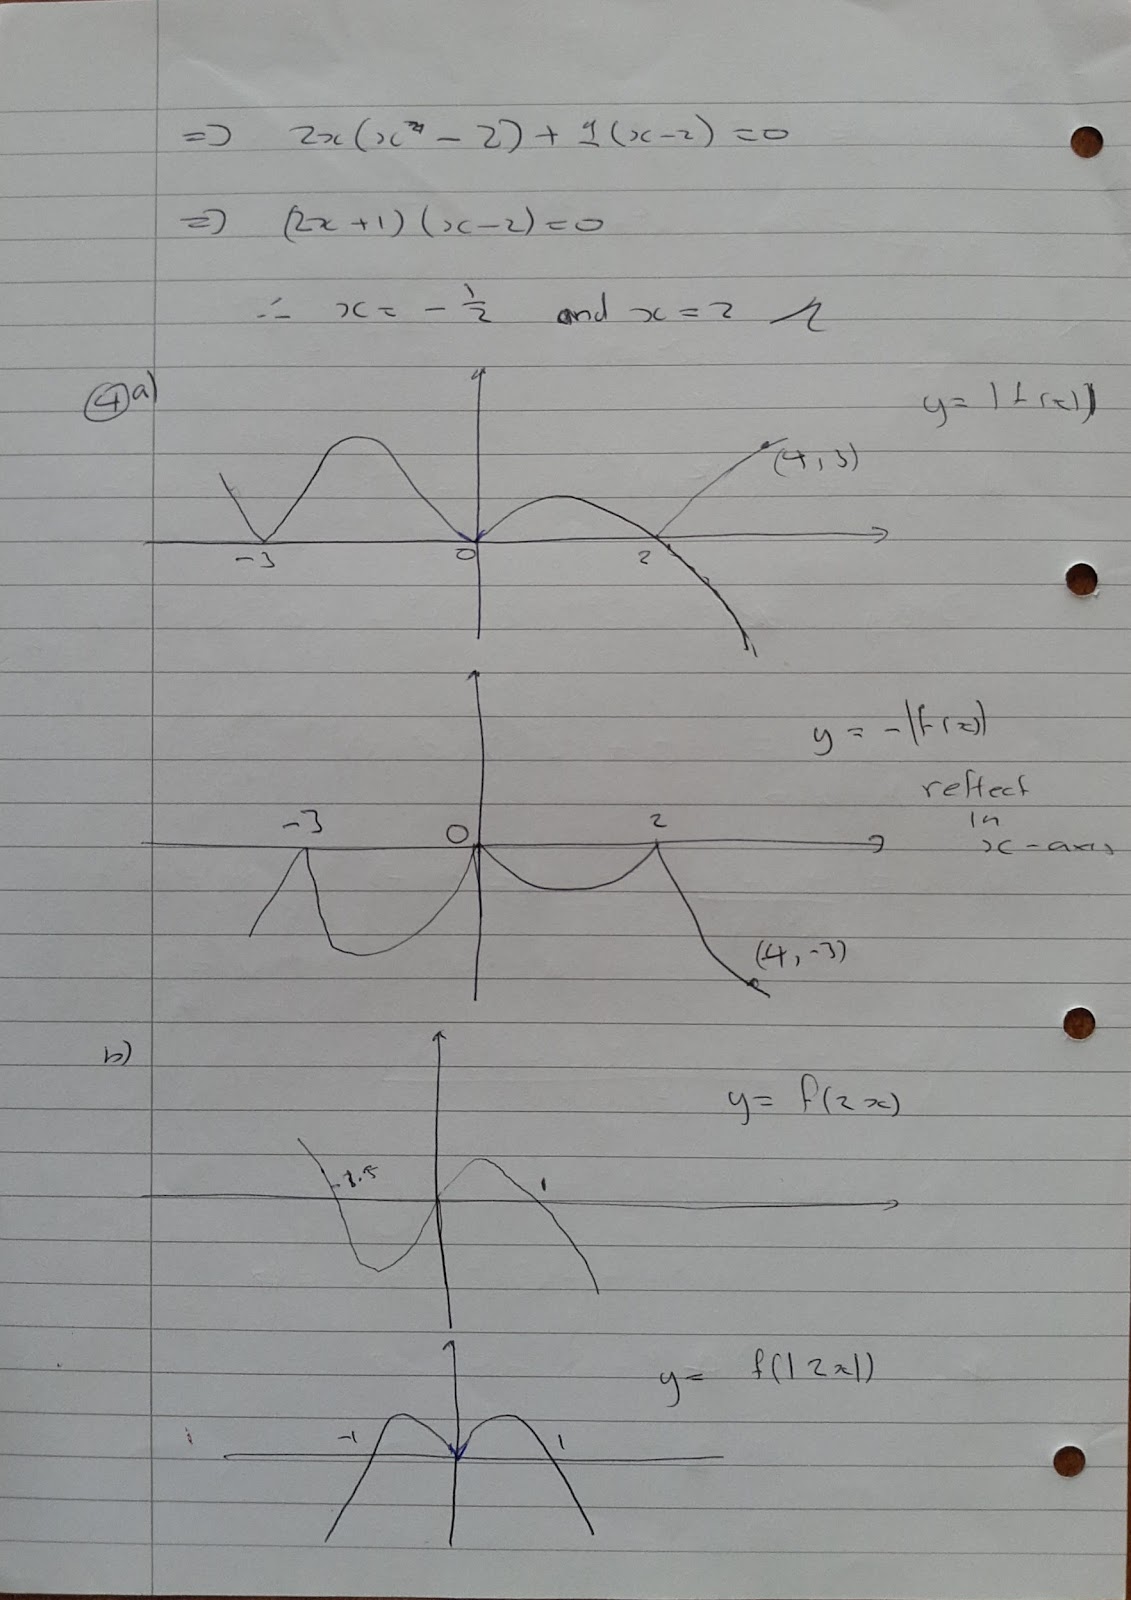 => 2x(x - 2) + 1(x-2) = 0
=> (2x+1)(x-2)=0
∴ x = - 1/2 and x = 2
④a)
y = |f(x)|
(4,3)
-3 0 2
y = -|f(x)|
reflect
in
x-axis
-3 0 2
(4,-3)
b)
y = f(2x)
1
y = f(|2x|)
-1 1